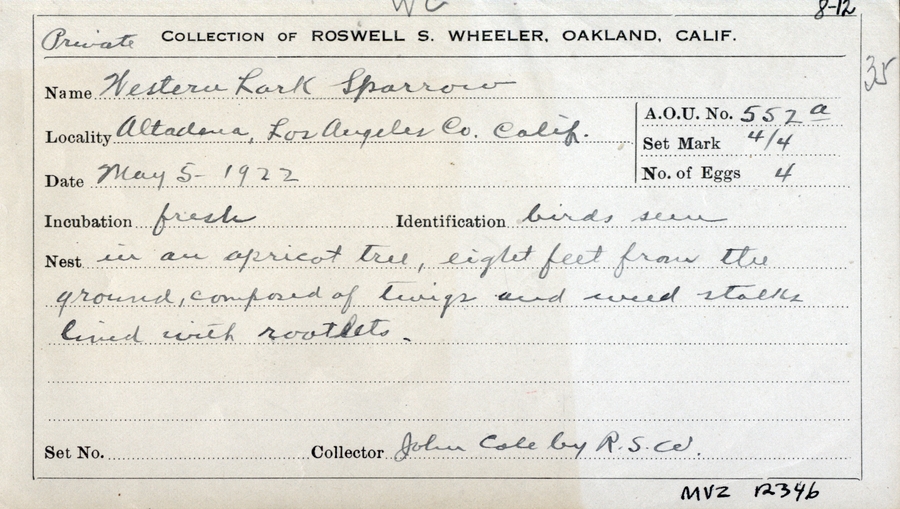 8-12
Private COLLECTION OF ROSWELL S. WHEELER, OAKLAND, CALIF.
35
Name Western Lark Sparrow
A.O.U. No. 552a
Locality Altadena, Los Angeles Co. Calif.
Set Mark 4/4
Date May 5- 1922
No. of Eggs 4
Incubation fresh Identification birds seen
Nest in an apricot tree, eight feet from the
ground, composed of twigs and weed stalks
lined with rootlets.
Set No. Collector John Cole by R.S.W.
MVZ 12346